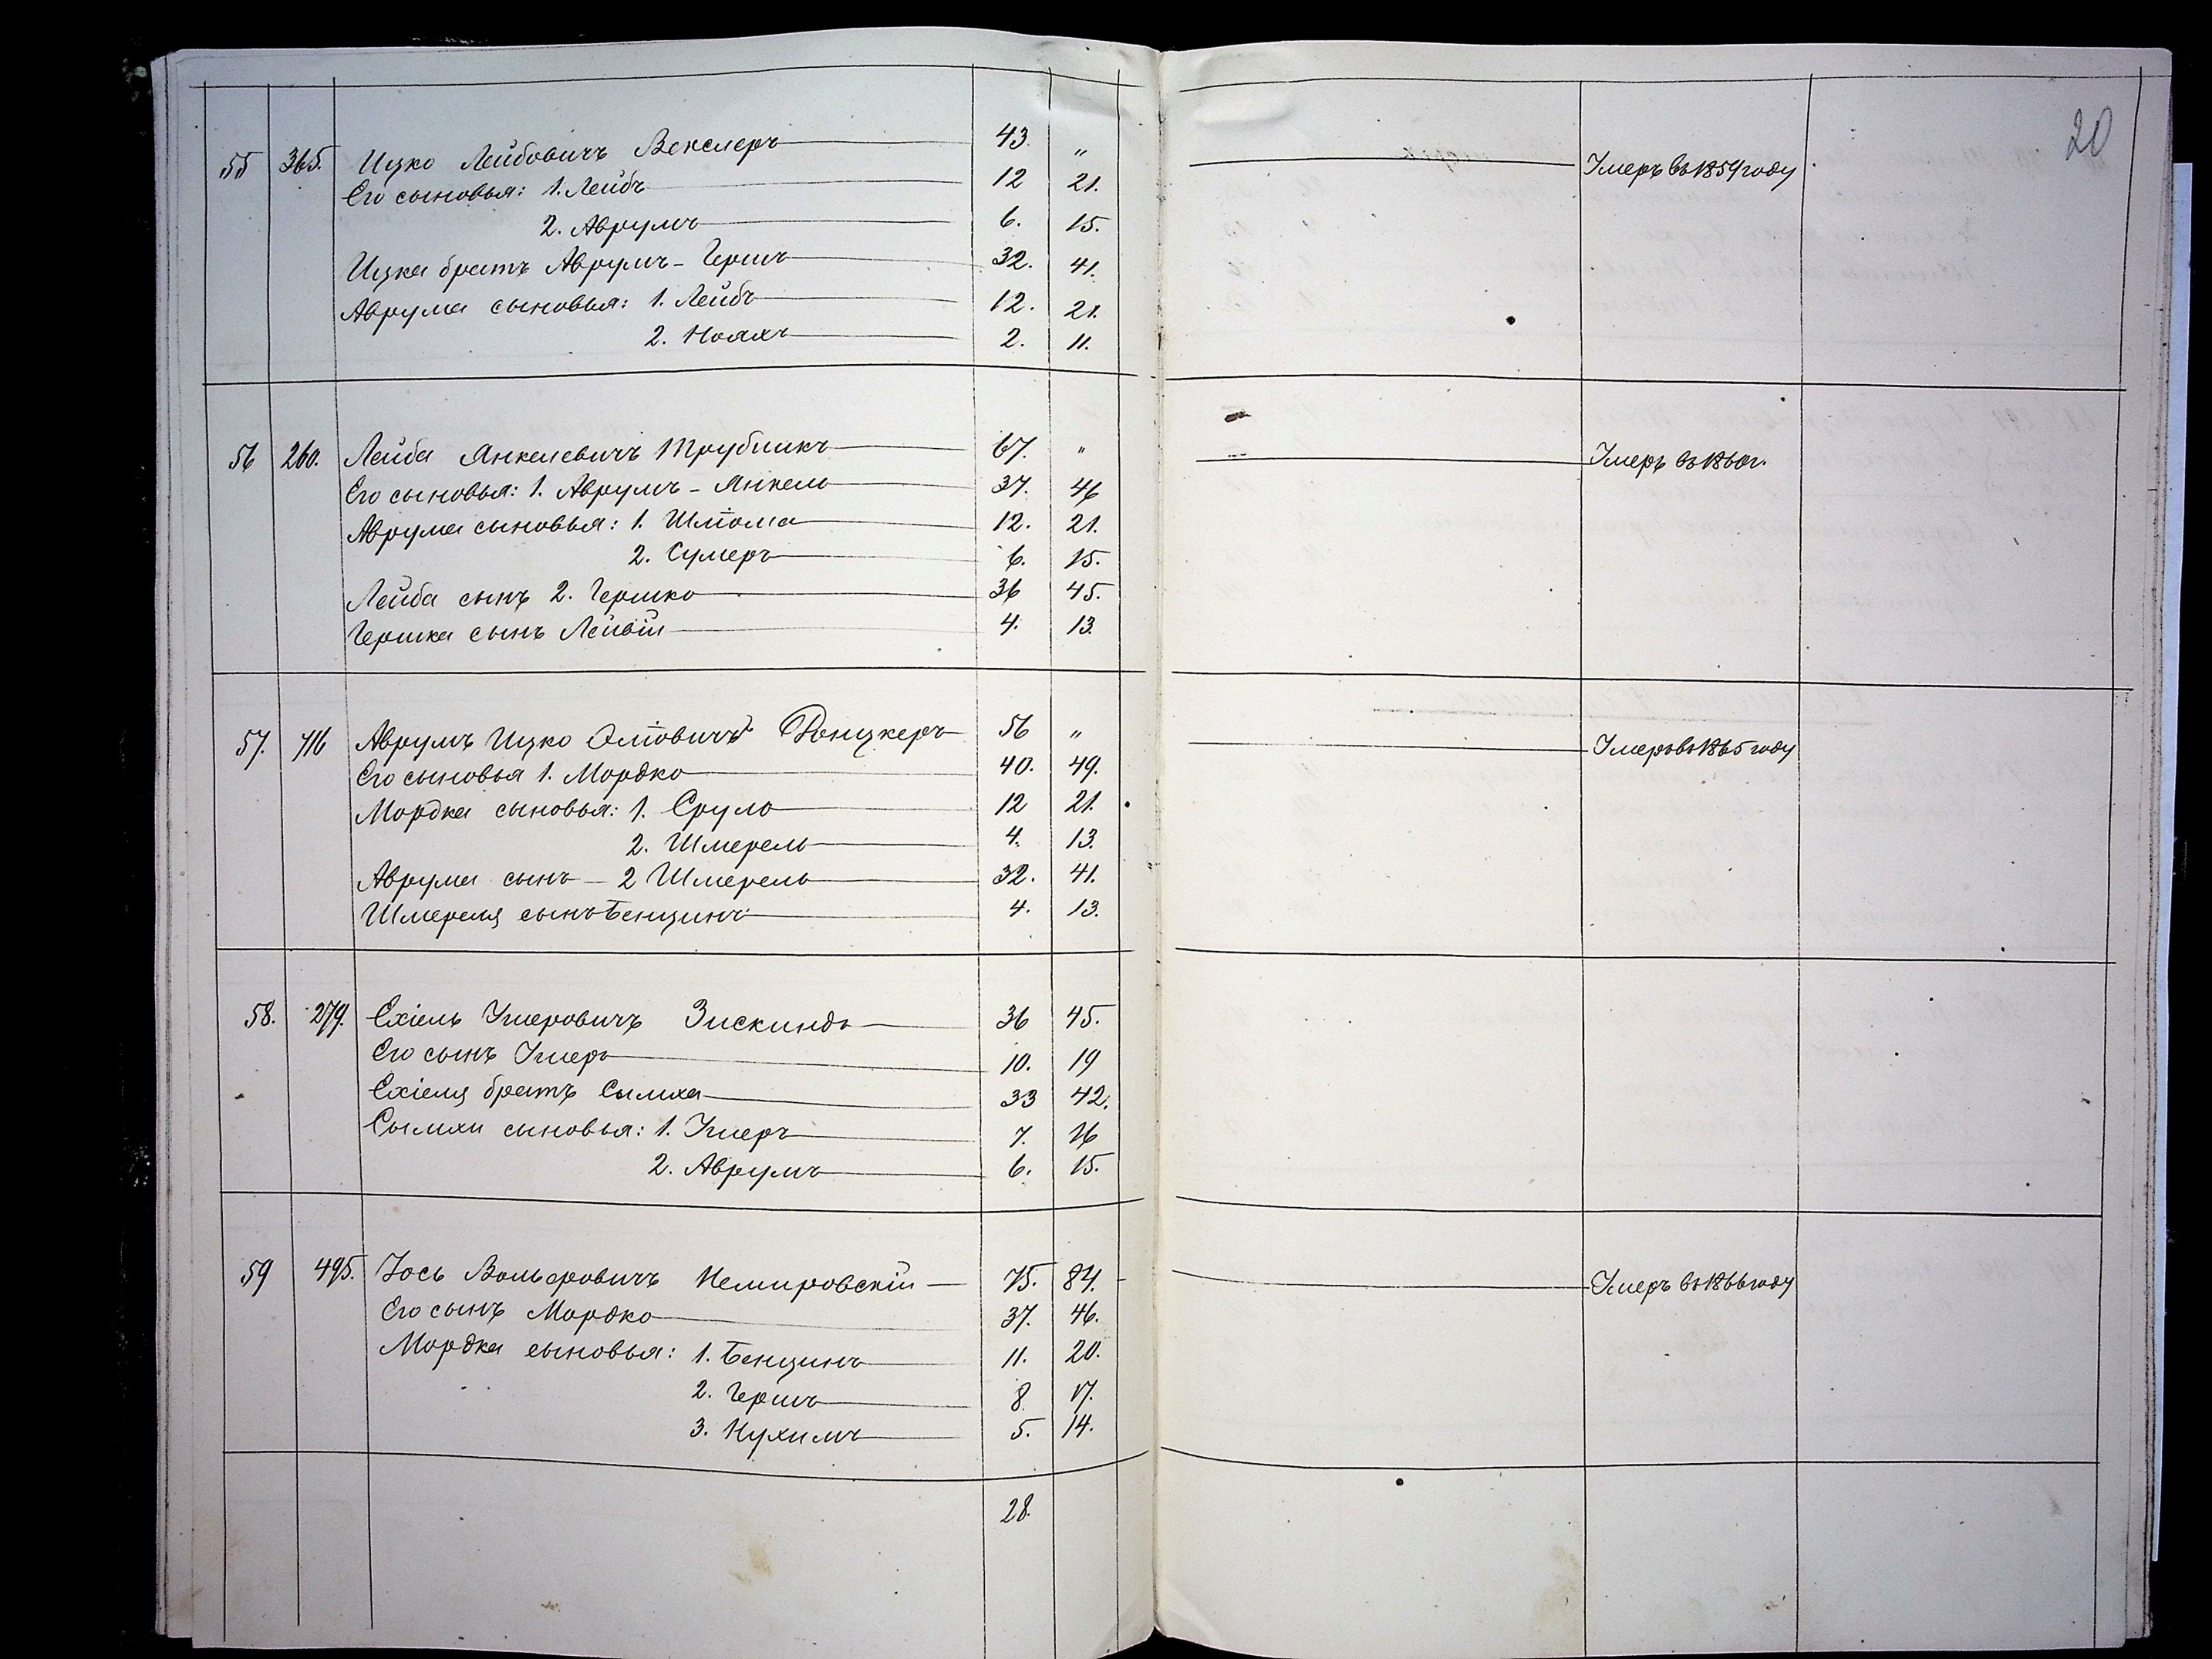 20
55 365. Ицко Лейбовичъ Векслеръ 43 „ Умеръ въ 1859 году
Его сыновья: 1. Лейбъ 12 21.
2. Аврумъ 6. 15.
Ицка братъ Аврумъ-Гершъ 32. 41.
Аврума сыновья: 1. Лейбъ 12. 21.
2. Ноахъ 2. 11.
56 260. Лейба Янкелевичъ Трубникъ 67. „ Умеръ въ 1860 г.
Его сыновья: 1. Аврумъ-Янкель 37. 46
Аврума сыновья: 1. Шліома 12. 21.
2. Сумеръ 6. 15.
Лейба сынъ 2. Гершко 36 45.
Гершка сынъ 4. 13.
57. 716 Аврумъ Ицко 56 „ Умеръ въ 1865 году
Его сыновья 1. Мордко 40. 49.
Мордка сыновья: 1. Сруль 12 21.
2. Шмерель 4. 13.
Аврума сынъ - 2 Шмерель 32. 41.
Шмереля сынъ Бенцинъ 4. 13.
58. 279. Ехіель Ушеровичъ Зискиндъ 36 45.
Его сынъ Ушеръ 10. 19
Ехіеля братъ Сымха 33 42.
Сымхи сыновья: 1. Ушеръ 7. 16
2. Аврумъ 6. 15.
59 495. Іось Вольфовичъ Немировскій 75. 84. Умеръ въ 1866 году
Его сынъ Мордко 37. 46.
Мордка сыновья: 1. Бенцинъ 11. 20.
2. Гершъ 8. 17.
3. Нухимъ 5. 14.
28.